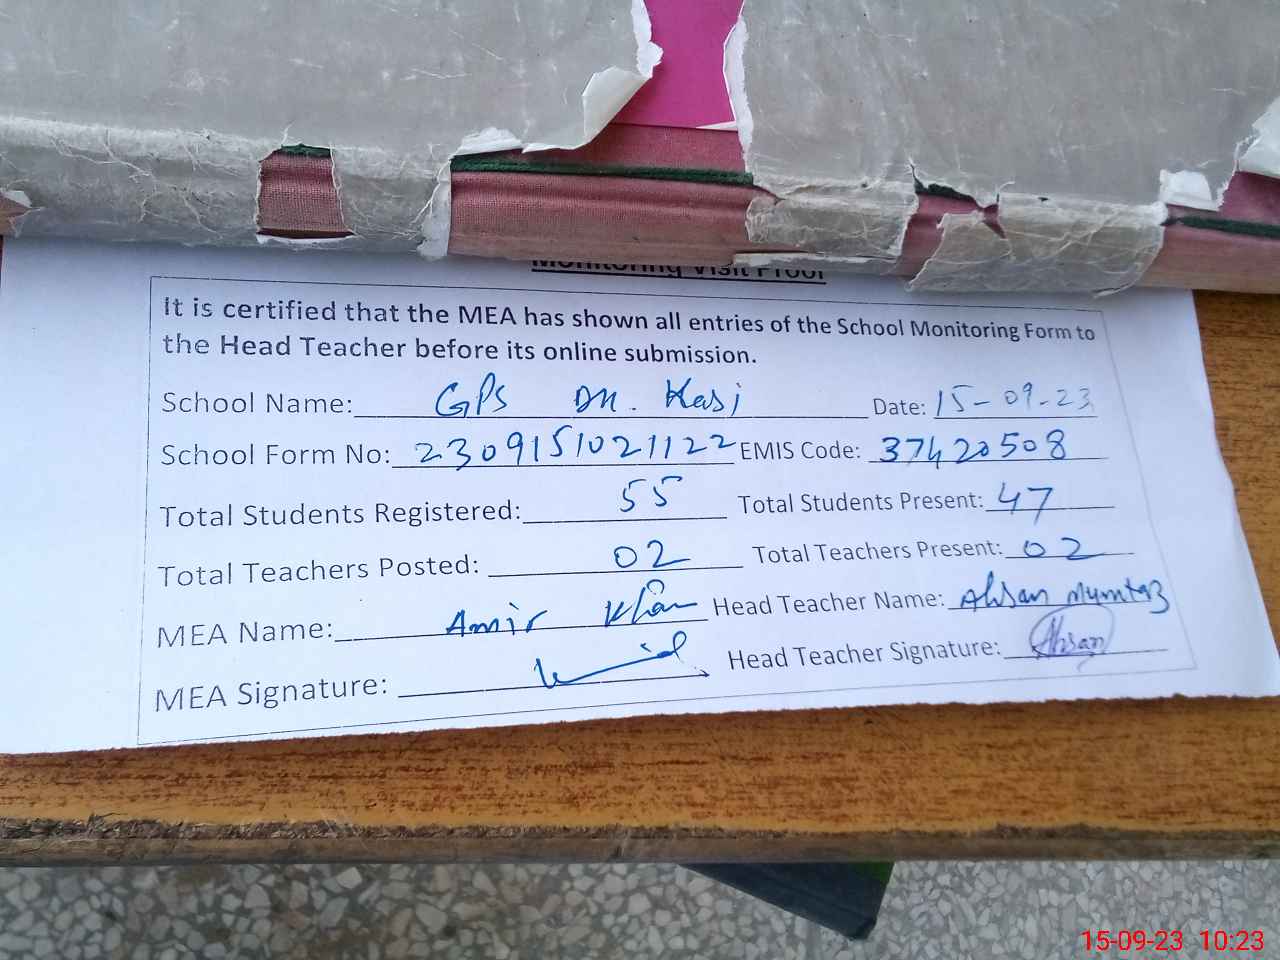 Monitoring Visit Proof
It is certified that the MEA has shown all entries of the School Monitoring Form to
the Head Teacher before its online submission.
School Name: GPS DM. Kasi Date: 15-09-23
School Form No: 2309151021122 EMIS Code: 37420508
Total Students Registered: 55 Total Students Present: 47
Total Teachers Posted: 02 Total Teachers Present: 02
MEA Name: Amir Khan Head Teacher Name: Ahsan Mumtaz
MEA Signature: Head Teacher Signature: Ahsan
15-09-23 10:23